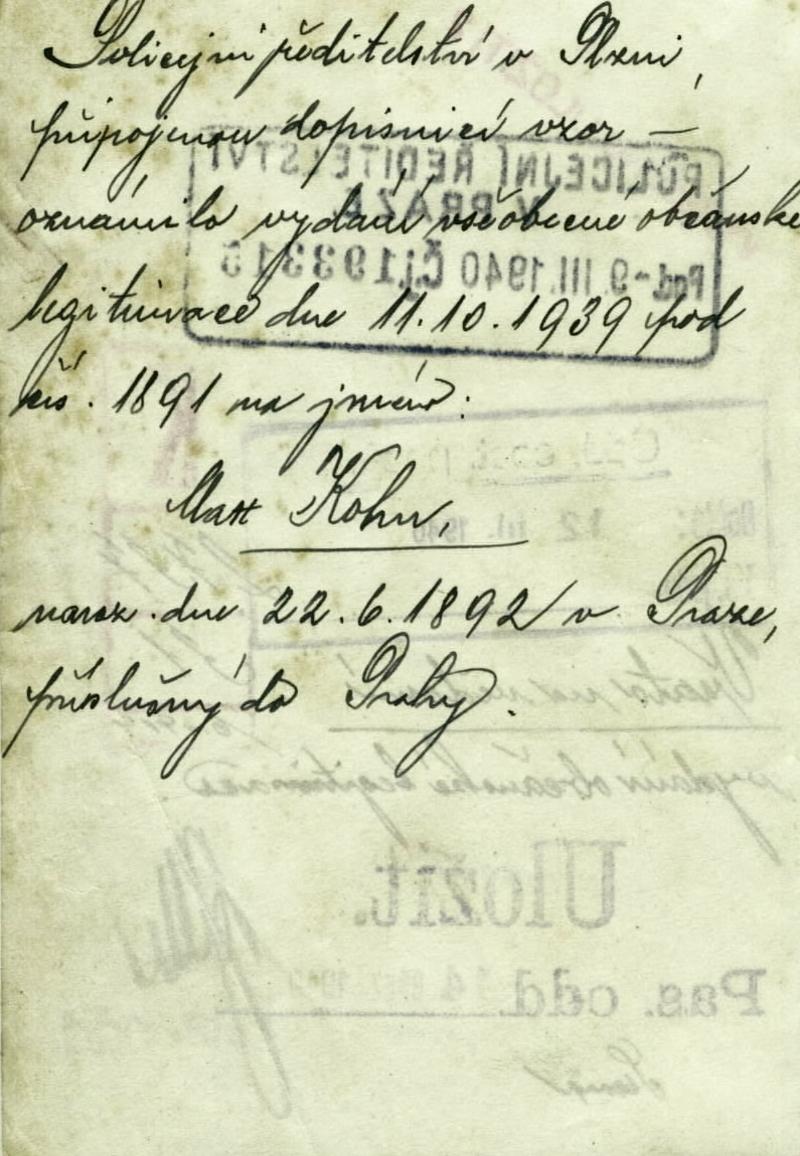 Policejní ředitelství v Plzni,
připojenou dopisnicí vzor –
oznámilo vydání všeobecné občanské
legitimace dne 11.10.1939 pod
čís. 1891 na jméno:
Max Kohn,
naroz. dne 22.6.1892 v Praze,
příslušný do Prahy.
POLICEJNÍ ŘEDITELSTVÍ
V PRAZE
Pod -9.III.1940 Čj 193315
12. III. 1940
vydání občanské legitimace
Uložit.
Pas. odd.